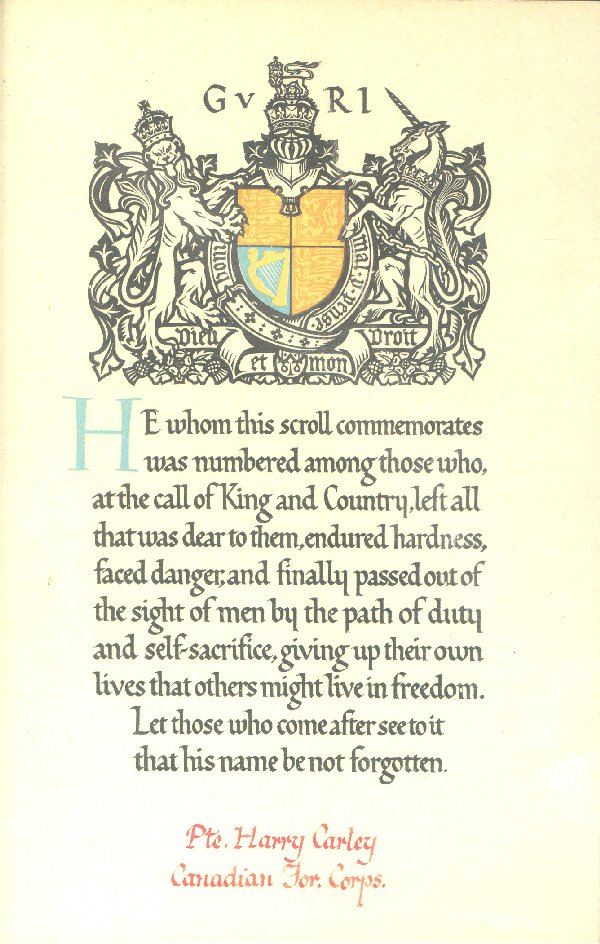 GvRI
honi
mal·y·pense
Dieu et mon Droit
HE whom this scroll commemorates
was numbered among those who,
at the call of King and Country, left all
that was dear to them, endured hardness,
faced danger, and finally passed out of
the sight of men by the path of duty
and self-sacrifice, giving up their own
lives that others might live in freedom.
Let those who come after see to it
that his name be not forgotten.
Pte. Harry Carley
Canadian For. Corps.